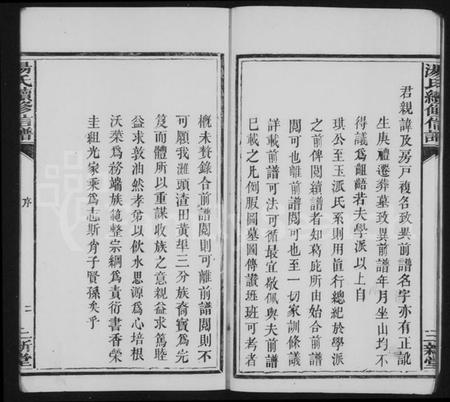 湯氏續修信譜
君親諱及房戶複名致異前譜名字亦有正訛
生庚禮遷葬墓致異前譜年月坐山均不
得議為齟齬若夫學派以上自
琪公至玉派氏系則用直行總紀於學派
之前俾閱續譜者知葛庇所由始合前譜
閱可也離前譜閱可也至一切家訓條議
詳載前譜可法可循最宜敬佩與夫前譜
已載之凡例服圖墓圖傳讚班班可考者
三新堂
概未贅錄合前譜閱則可離前譜閱則不
可願我灘頭渣田黃畢三分族裔寶為先
笈而體所以重謀收族之意親益求篤睦
益求敦油然孝弟以飲水思源為心培根
沃葉為務端族範整宗綱為責衍書香榮
圭組光家乘為志斯肖子賢孫矣乎
湯氏續修信譜
序
三新堂